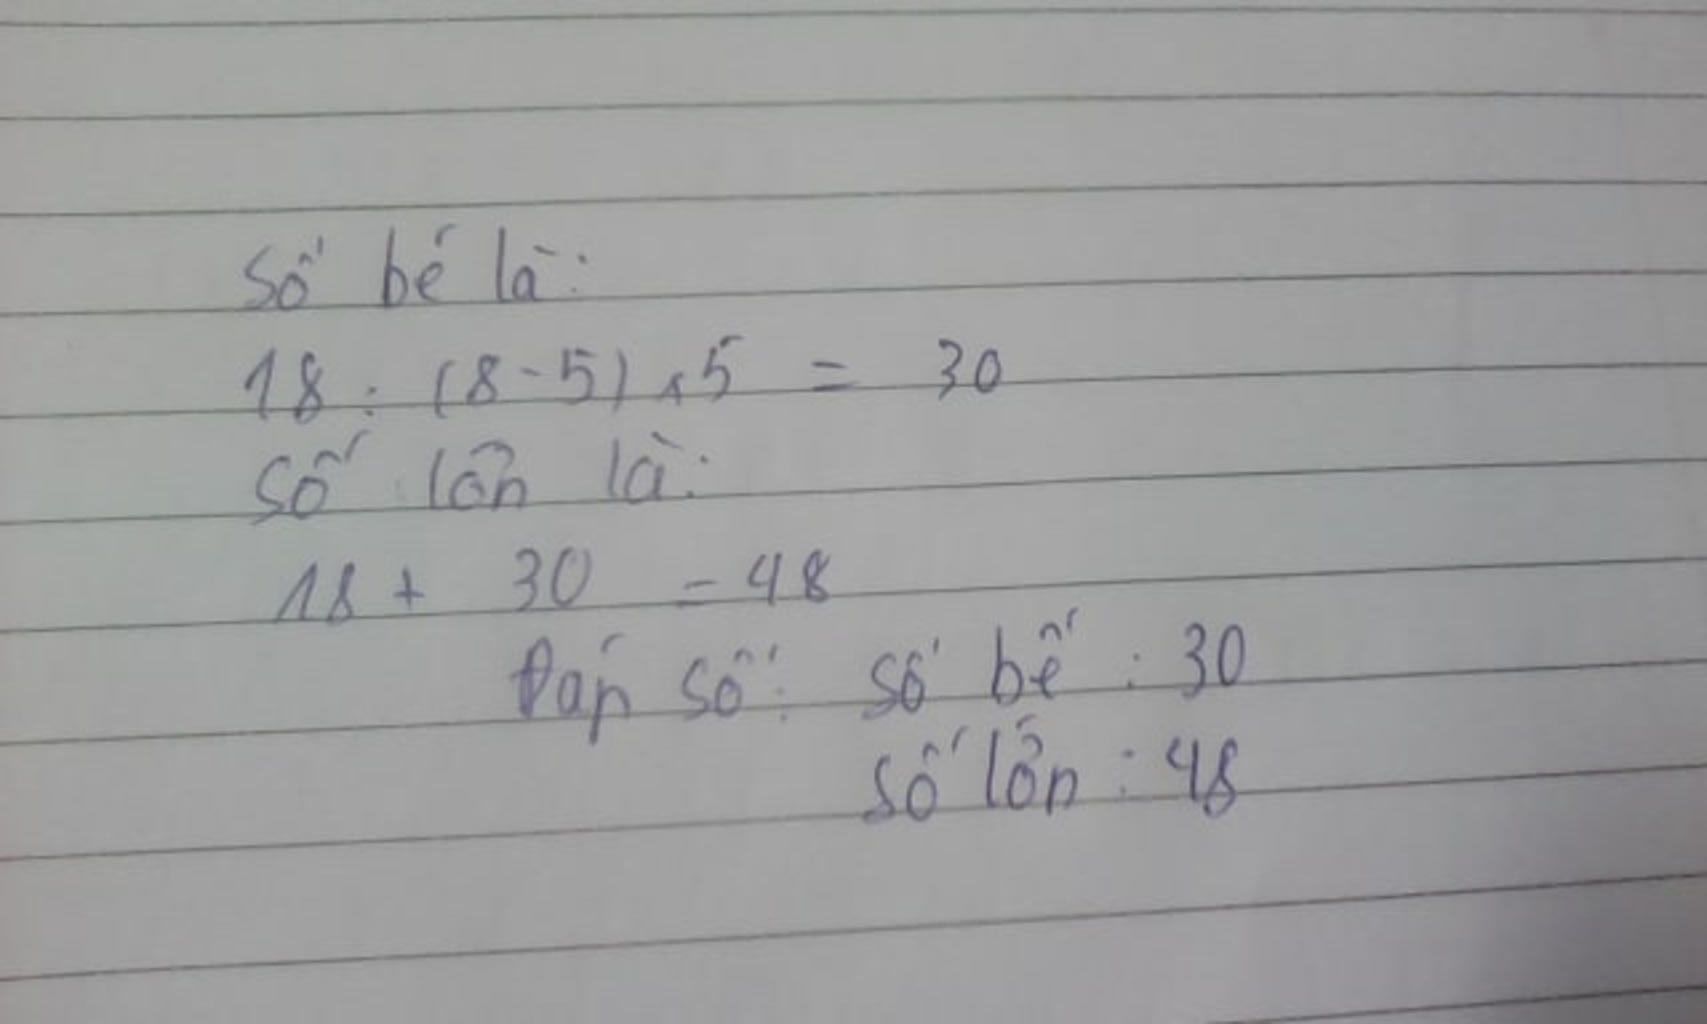 Số bé là:
18 : (8-5) x 5 = 30
Số lớn là:
18 + 30 = 48
Đáp số: số bế : 30
số lớn : 48